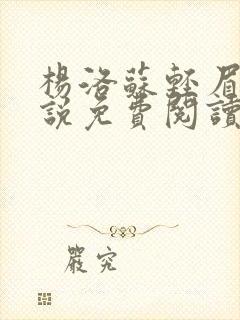 楊洛蘇輕眉
說免費閱讀
嚴究